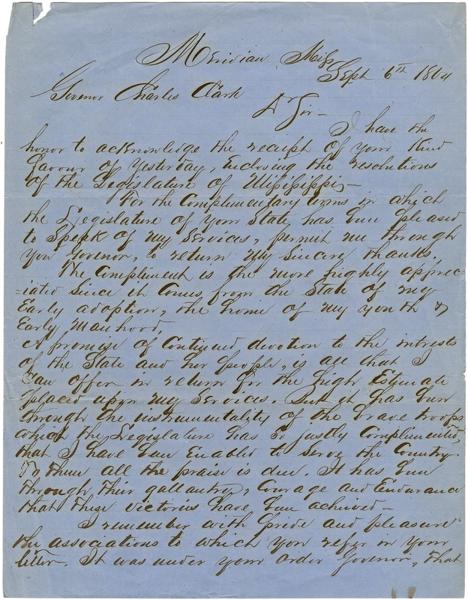 Meridian Miss
Sept 6th 1864
Governor Charles Clark
Dr Sir -
I have the
honor to acknowledge the receipt of your kind
favour of yesterday, inclosing the resolutions
of the Legislature of Mississippi -
For the complimentary terms in which
the Legislature of your State has been pleased
to speak of my services, permit me through
you Governor, to return my sincere thanks.
The compliment is the more highly apprec
=iated since it comes from the State of my
early adoption, the home of my youth &
early manhood.
A promise of continued devotion to the interests
of the State and her people, is all that I
can offer in return for the high estimate
placed upon my services. But it has been
through the instrumentality of the brave troops
which the Legislature has so justly complimented,
that I have been enabled to serve the country.
To them all the praise is due. It has been
through their gallantry, courage and endurance
that these victories have been achieved -
I remember with pride and pleasure
the associations to which you refer in your
letter. It was under your order Governor, that